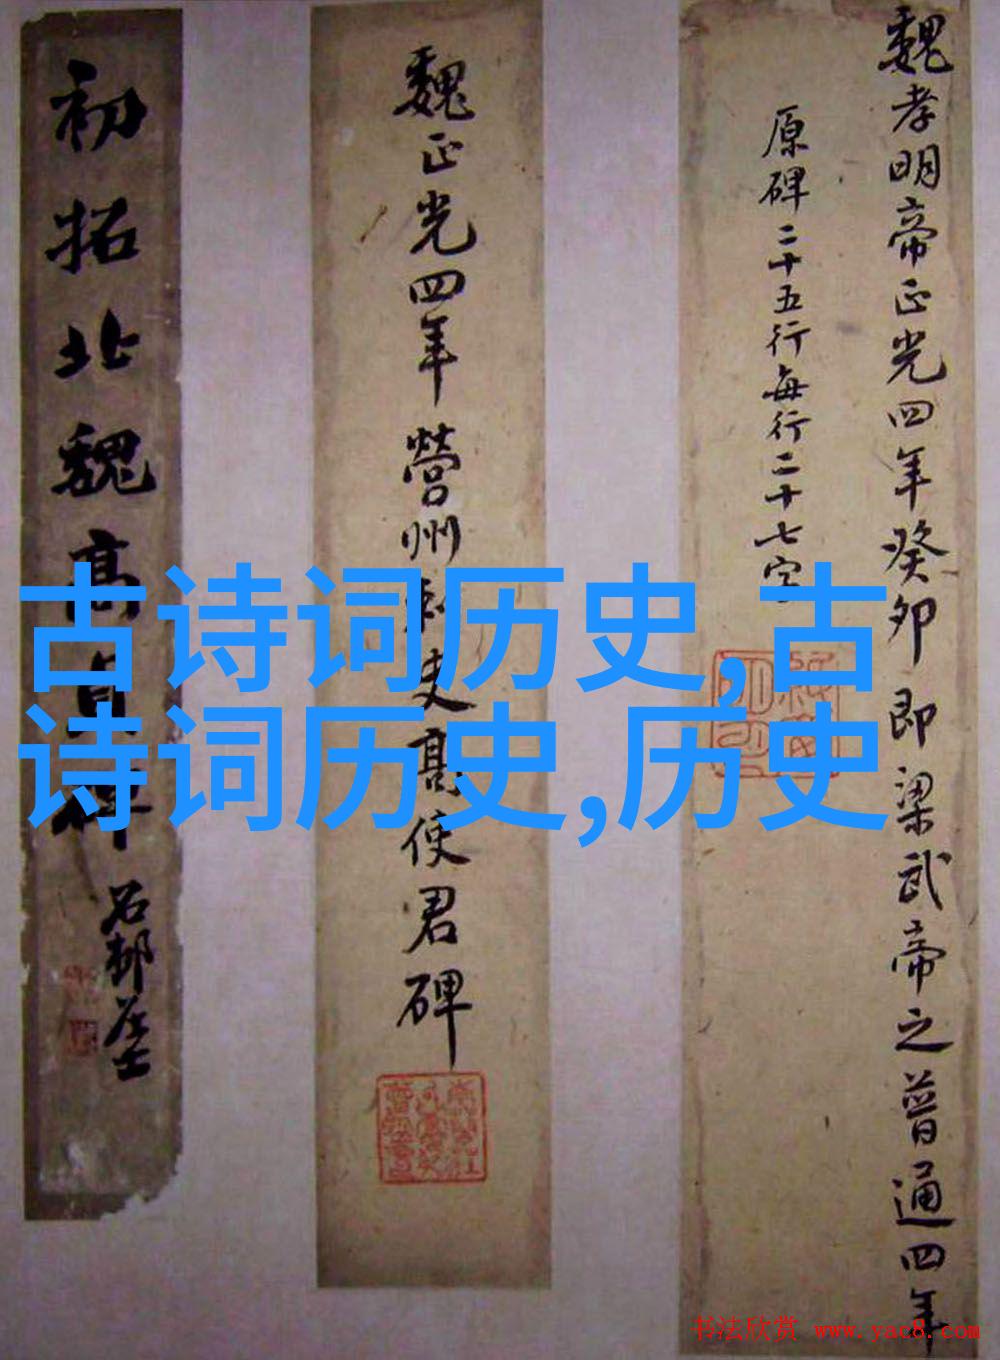 魏孝明帝正光四年癸卯即梁武帝之普通四年
原碑二十五行每行二十七字
魏正光四年營州刺史高使君碑
初拓北魏高貞碑
石邨居士
古诗词历史,古
诗词历史,历史
书法欣赏 www.yac8.com